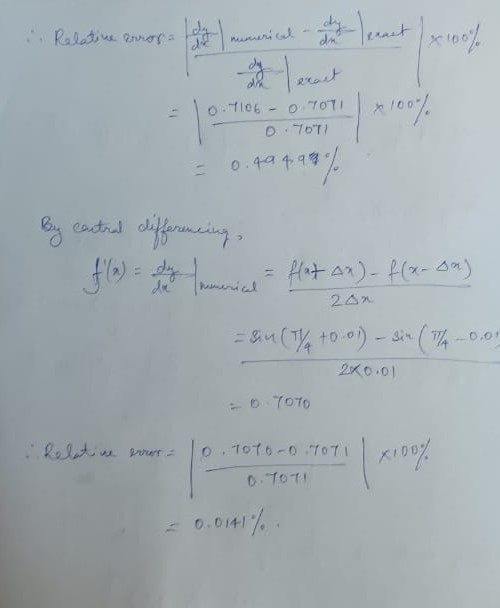 ∴ Relative error = | dy/dx | numerical - dy/dx | exact / dy/dx | exact | × 100%
= | 0.7106 - 0.7071 / 0.7071 | × 100%
= 0.4949%
By central differencing,
f'(x) = dy/dx | numerical = f(x + Δx) - f(x - Δx) / 2Δx
= sin(π/4 + 0.01) - sin(π/4 - 0.01) / 2×0.01
= 0.7070
∴ Relative error = | 0.7070 - 0.7071 / 0.7071 | × 100%
= 0.0141%.